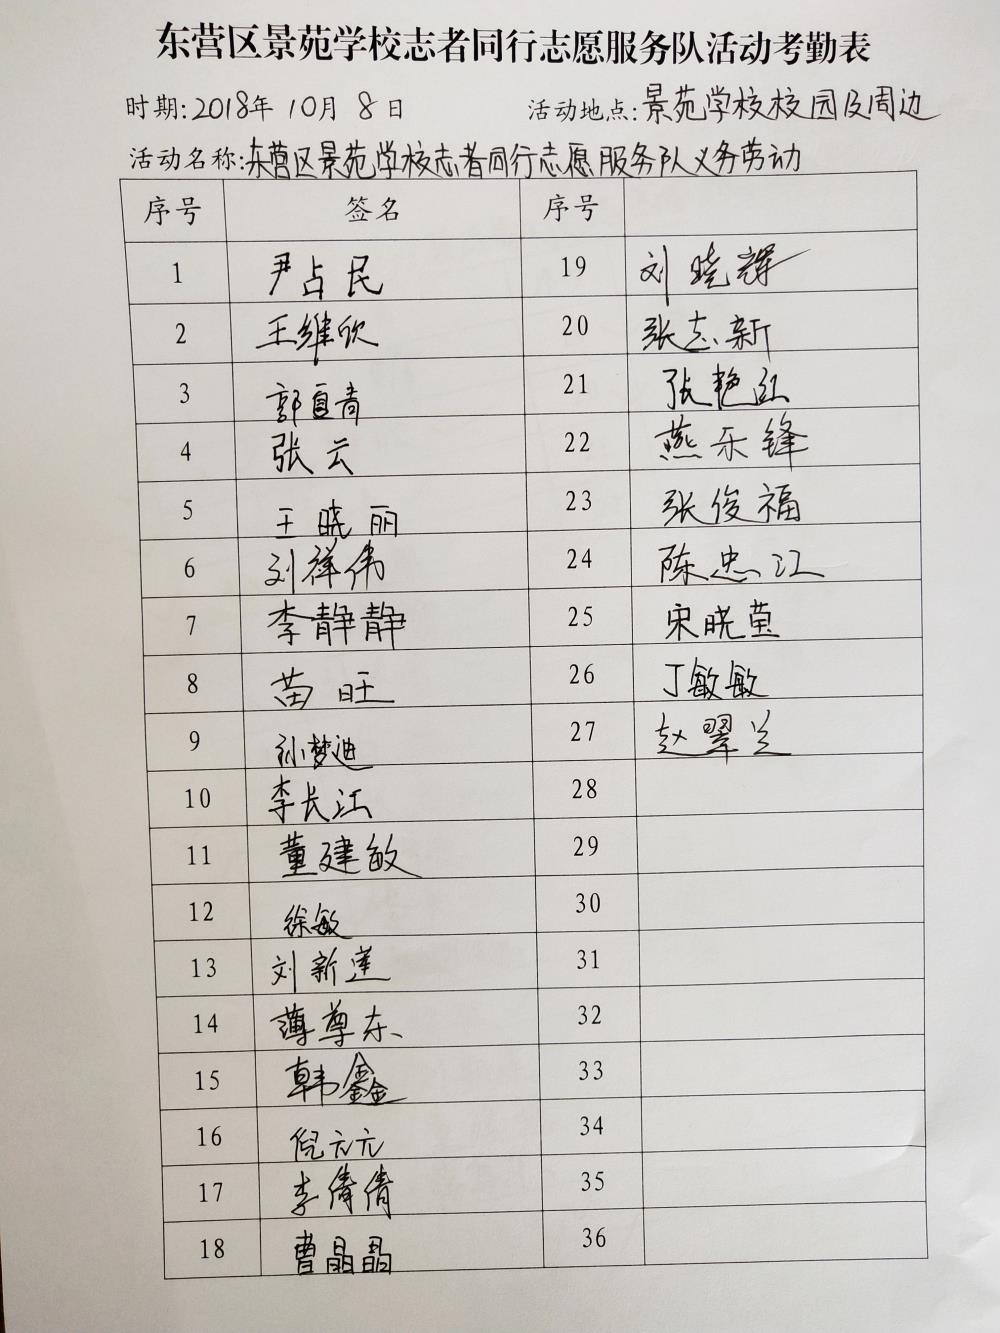 东营区景苑学校志者同行志愿服务队活动考勤表
时期:2018年 10月 8日 活动地点:景苑学校校园及周边
活动名称:东营区景苑学校志者同行志愿服务队义务劳动
序号 签名 序号
1 尹占民 19 刘晓辉
2 王维欣 20 张志新
3 郭自青 21 张艳红
4 张云 22 燕乐锋
5 王晓丽 23 张俊福
6 刘祥伟 24 陈忠江
7 李静静 25 宋晓莹
8 苗旺 26 丁敏敏
9 孙梦迪 27 赵翠兰
10 李长江 28
11 董建敏 29
12 徐敏 30
13 刘新莲 31
14 薄尊东 32
15 韩鑫 33
16 倪元元 34
17 李倩倩 35
18 曹晶晶 36